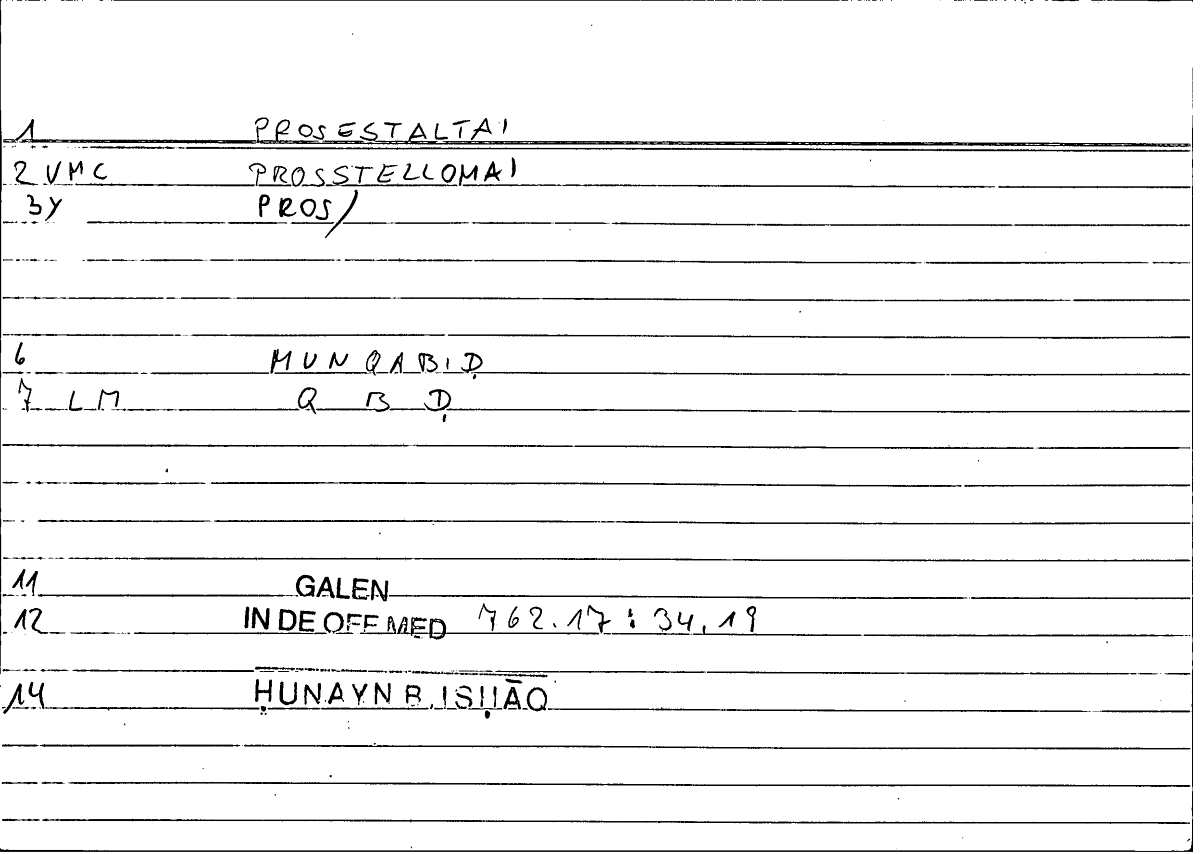 1 PROSESTALTAI
2 VMC PROSSTELLOMAI
3Y PROS/
6 MUNQABIḌ
7 LM Q B Ḍ
11 GALEN
12 IN DE OFF MED 762.17 : 34,19
14 ḤUNAYN B. ISḤĀQ